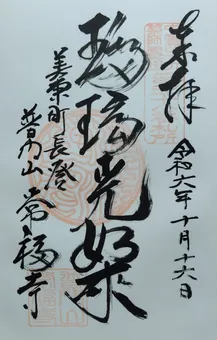 奉拝
令和六年十月十六日
瑠璃光如来
美東町長登
普為山常福寺